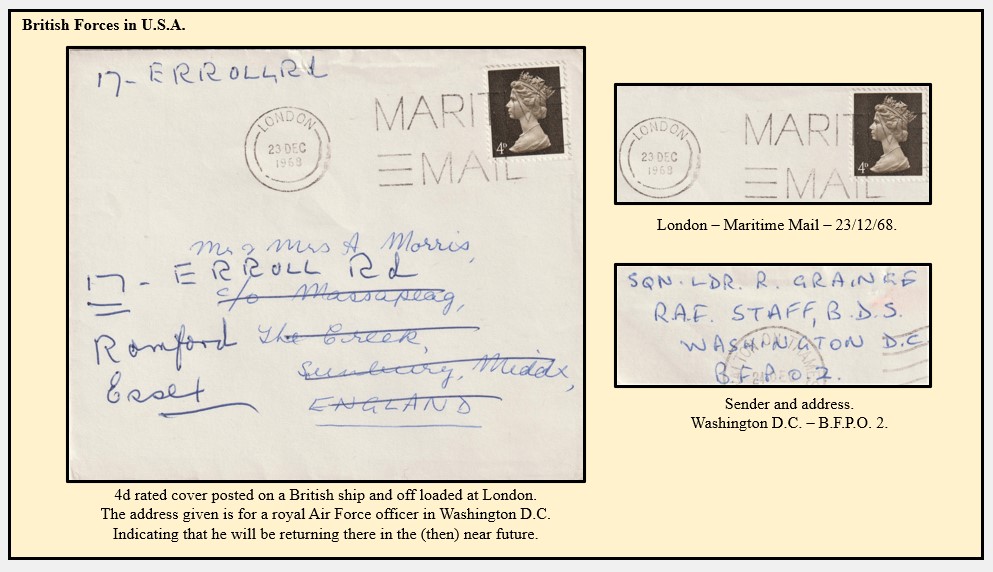 British Forces in U.S.A.
17- ERROLL Rd
LONDON
23 DEC
1968
MARIT
MAIL
4D
Mr & Mrs A Morris,
17- ERROLL Rd
c/o Massapeag,
Romford
The Creek,
Sunbury, Middx,
Essex
ENGLAND
4d rated cover posted on a British ship and off loaded at London.
The address given is for a royal Air Force officer in Washington D.C.
Indicating that he will be returning there in the (then) near future.
LONDON
23 DEC
1968
MARIT
MAIL
4D
London – Maritime Mail – 23/12/68.
SQN. LDR. R. GRAINGE
RAF. STAFF, B.D.S.
WASHINGTON D.C
B.F.P.O. 2.
Sender and address.
Washington D.C. – B.F.P.O. 2.